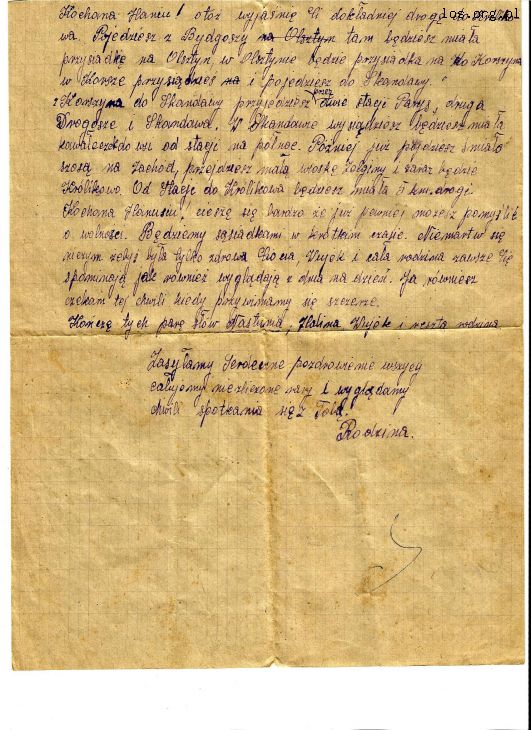 Kochana Haniu! otóż wyjaśnię Ci dokładniej drogę
los.org.pl
wa. Pojedziesz z Bydgoszy na Olsztyn tam będziesz miała
przysiadkę na Olsztyn, w Olsztynie będzie przysiadka na do Korszyna
w Korsze przysiądzies na i pojedziesz do Skandawy."
z Korszyna do Skandawy przyjedziesz przez dwie stacji Parys, druga
Drogosze i Skandawa. W Skandawie wysiądziesz będziesz miała
kawałeczek od stacji na północ. Poźniej już przyjdziesz śmiało
szosą na Zachód, przejdziesz małą wioskę i zaraz będzie
Królikowo. Od Stacji do Królikowa będziesz miała 5 km. drogi.
Kochana Haniusiu! cieszę się bardzo że już pewniej możesz pomyślić
o wolności. Będziemy sąsiadkami w krótkim czasie. Niemartw się
niczym żebyś była tylko zdrowa Ciocia, Wujek i cała rodzina zawsze Cię
spominają jak również wyglądają z dnia na dzień. Ja również
czekam tej chwili kiedy przywitamy się szczerze.
Kończę tych parę słów Nastunia, Halina Wujek i reszta rodzina
Zasyłamy Serdeczne pozdrowienie wszyscy
całujemy niezliczone razy i wyglądamy
chwili spotkania się z Tobą.
Rodzina.